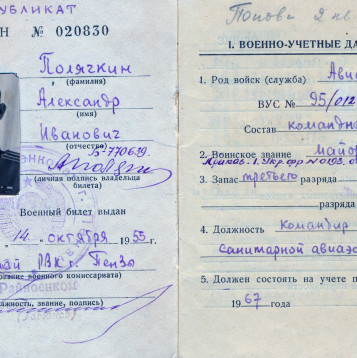 УБЛИКАТ
Н № 020830
Полячкин
(фамилия)
Александр
(имя)
Иванович
(отчество)
(личная подпись владельца
билета)
Военный билет выдан
„14“ октября 1955 г.
РВК г. Пензы
военного комиссариата)
звание, подпись)
Попова 2
I. ВОЕННО-УЧЕТНЫЕ ДА
1. Род войск (служба) Ави
ВУС № 95/012
Состав командн
2. Воинское звание Майор
3. Запас третьего разряда
разряда
4. Должность Командир
санитарной авиаэ
5. Должен состоять на учете п
1967 года